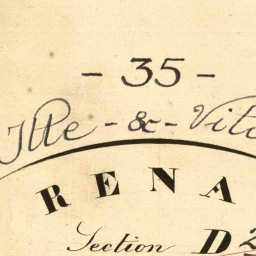 - 35 -
Ille - & - Vila
RENA
Section D2